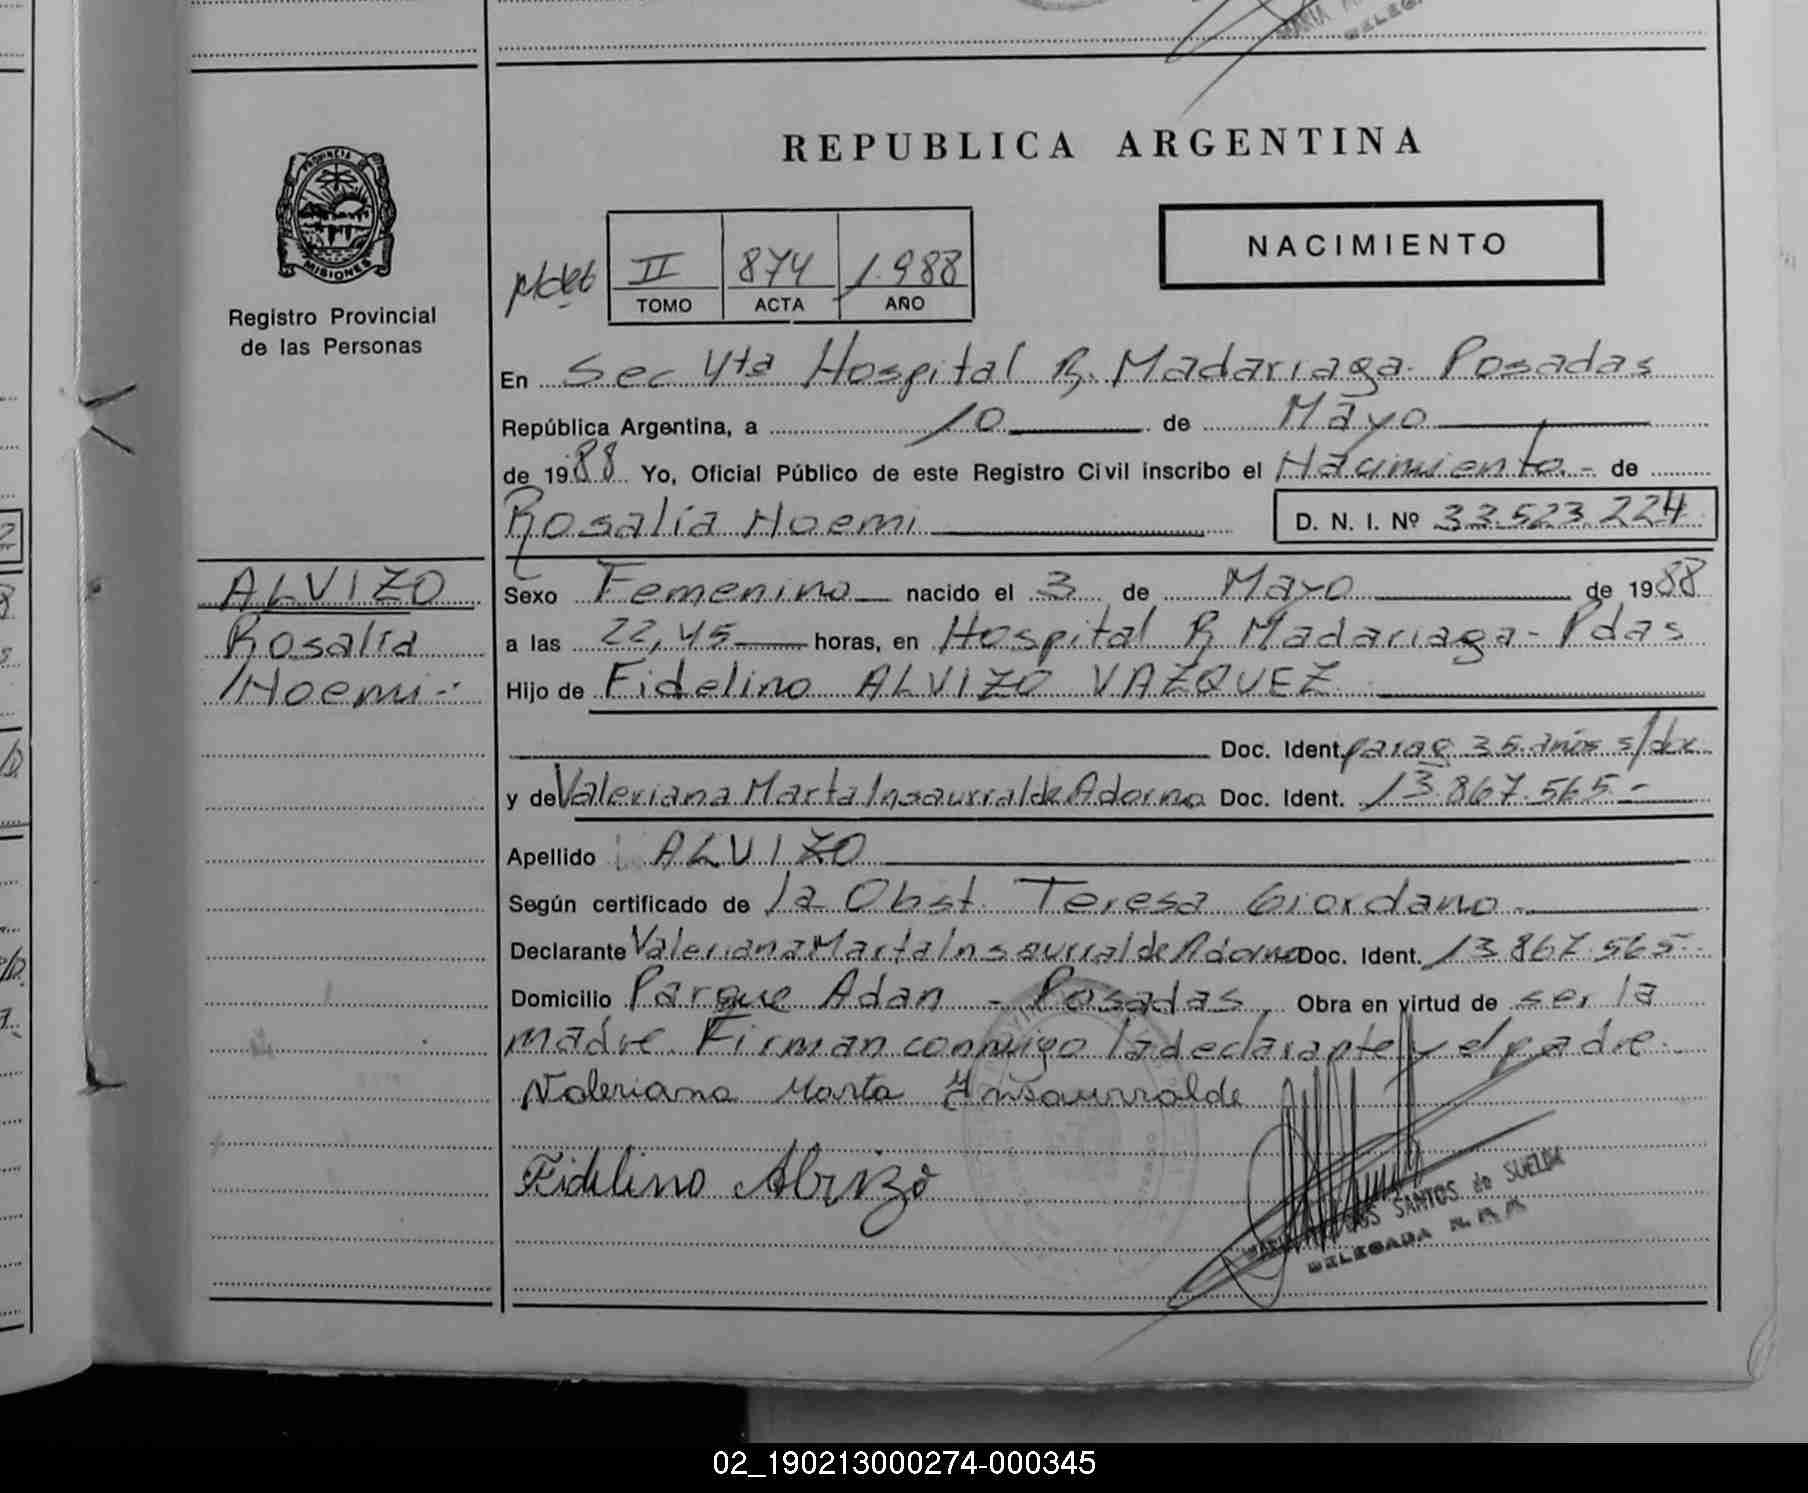 REPUBLICA ARGENTINA
PROVINCIA DE
MISIONES
Registro Provincial
de las Personas
II 874 1.988
TOMO ACTA AÑO
NACIMIENTO
En Sec 4ta Hospital R. Madariaga Posadas
República Argentina, a 10 de Mayo
de 1988 Yo, Oficial Público de este Registro Civil inscribo el Nacimiento - de
Rosalía Noemi D. N. I. Nº 33.523.224
ALVIZO
Rosalía
Noemi-:
Sexo Femenino nacido el 3 de Mayo de 1988
a las 22,45 horas, en Hospital R Madariaga - Pdas
Hijo de Fidelino ALVIZO VAZQUEZ
Doc. Ident. parag 35 años s/doc
y de Valeriana Marta Insaurralde Adorno Doc. Ident. 13.867.565-
Apellido ALVIZO
Según certificado de la Obst. Teresa Giordano
Declarante Valeriana Marta Insaurralde Adorno Doc. Ident. 13.867.565-
Domicilio Parque Adan - Posadas Obra en virtud de ser la
madre. Firman conmigo la declarante y el padre.
Valeriana Marta Insaurralde
Fidelino Alvizo
SANTOS de SUELDA
DELEGADA
02_190213000274-000345